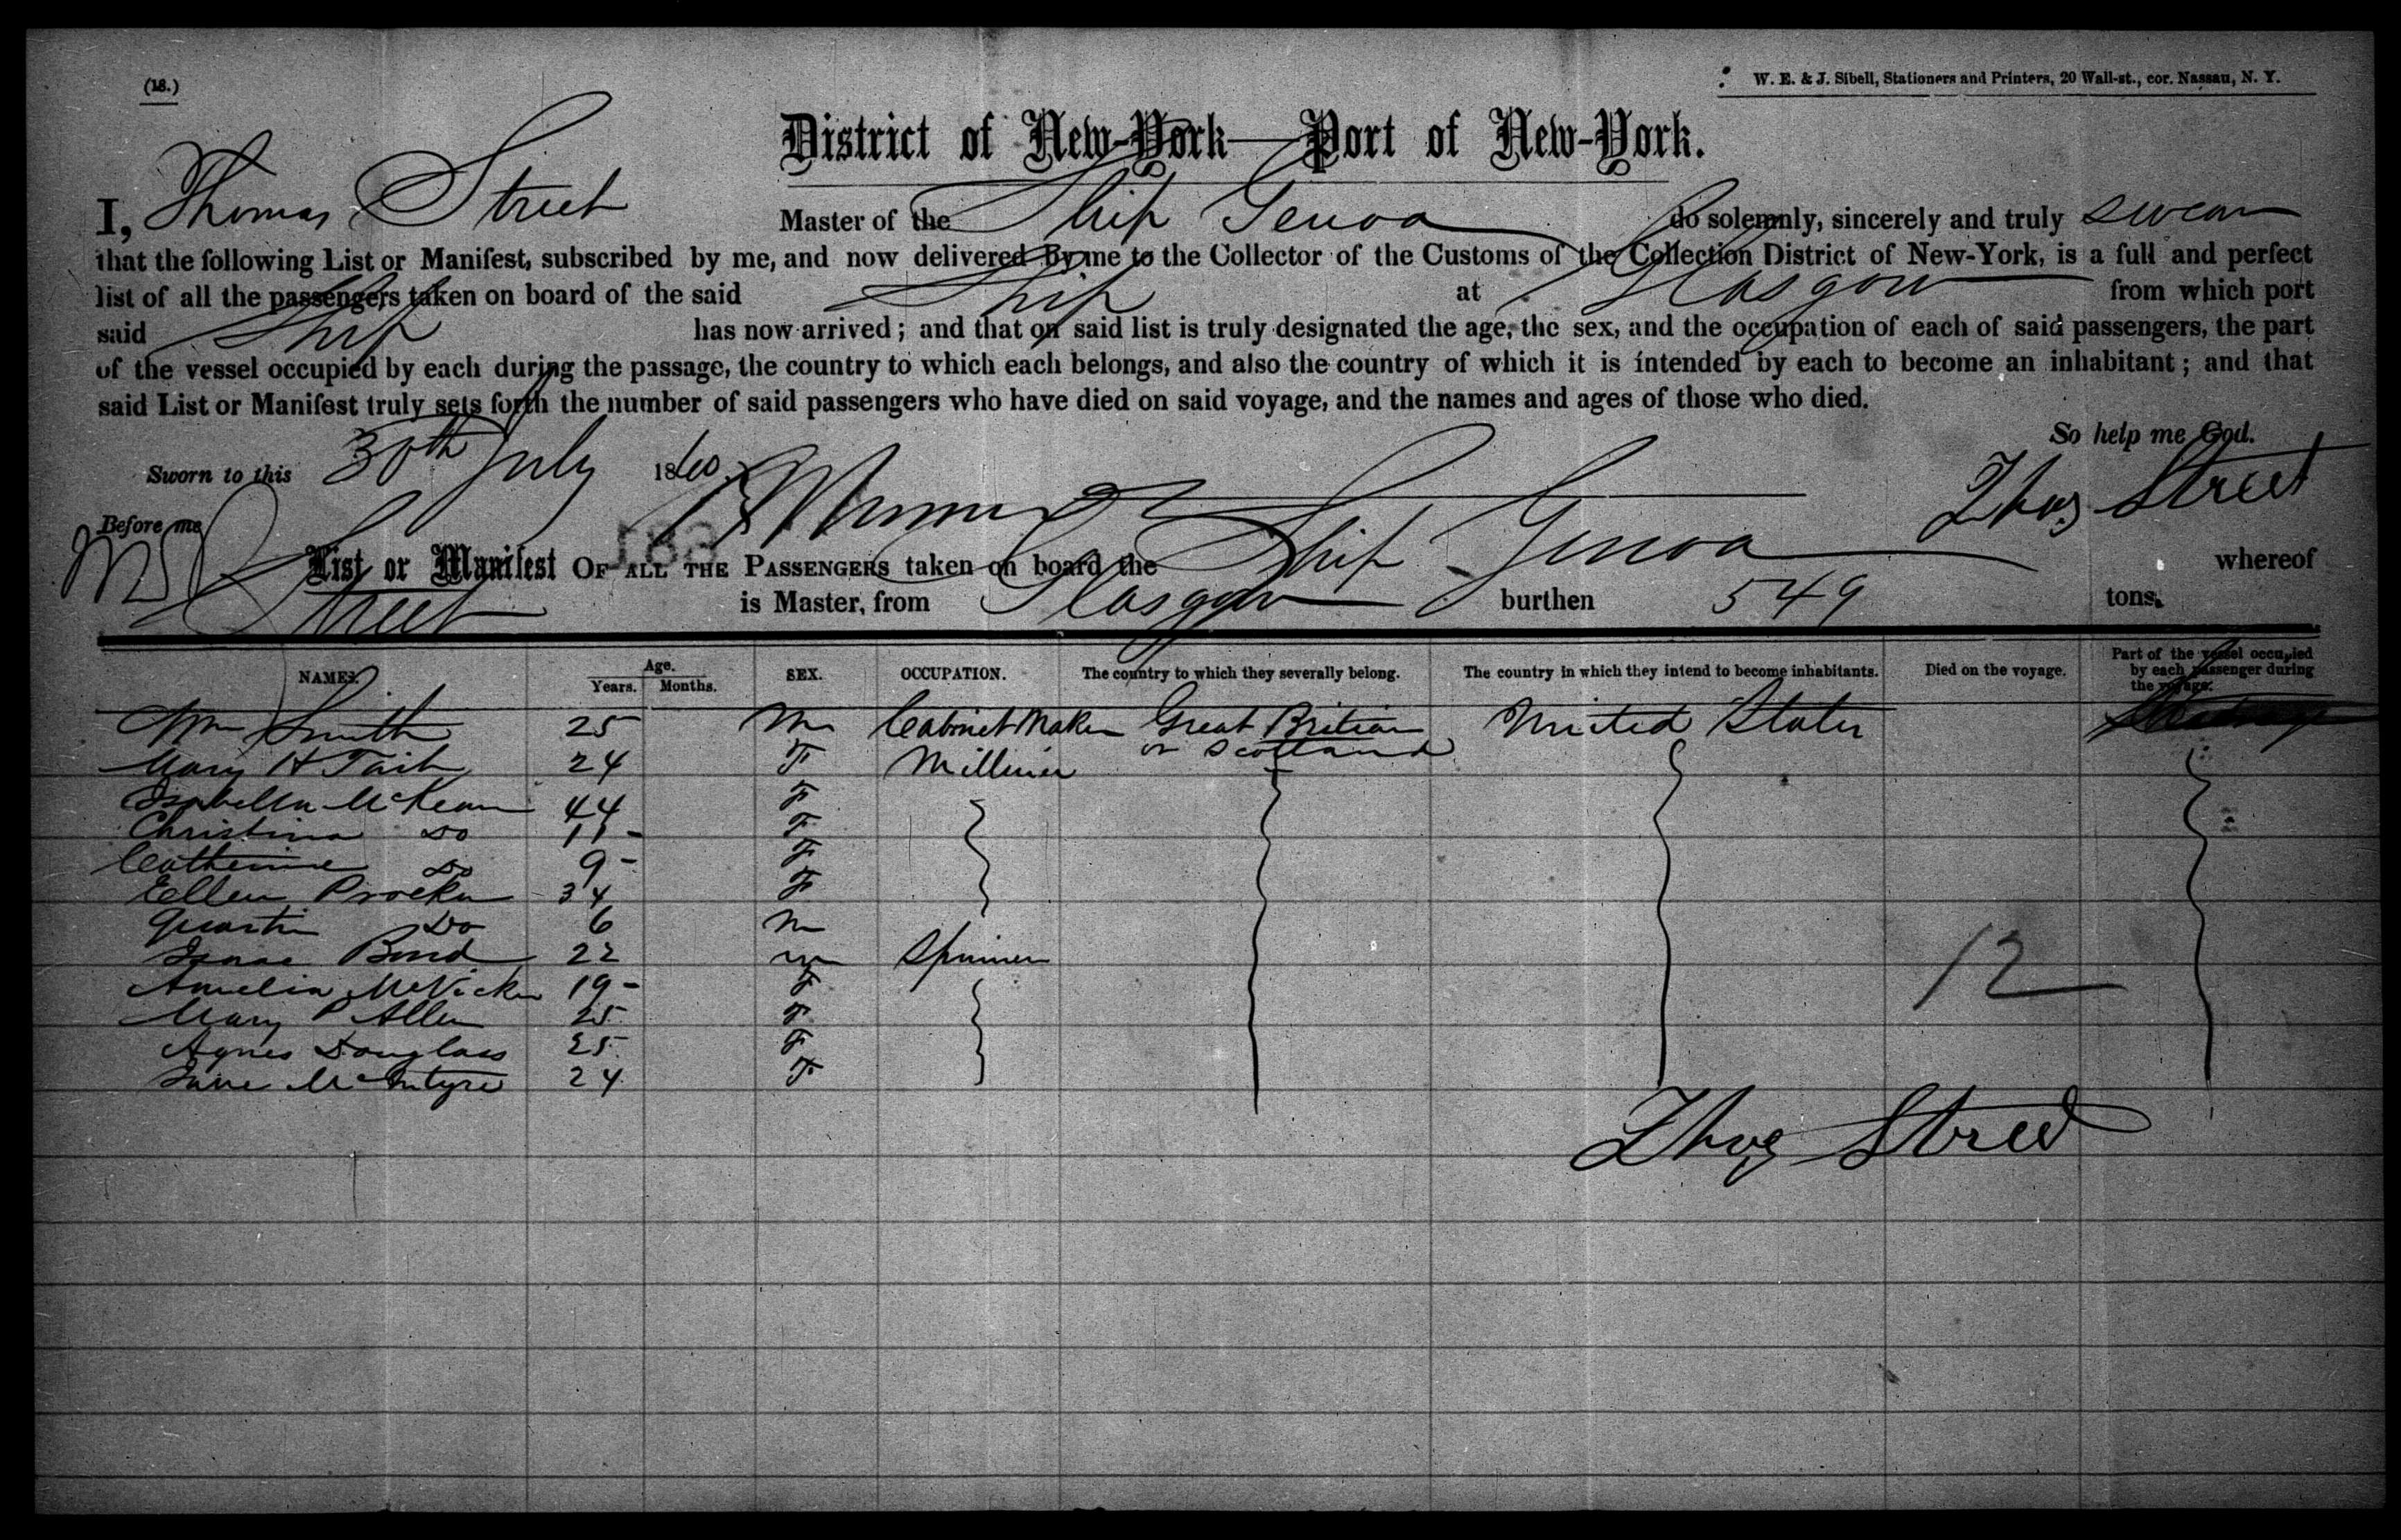 (18.)
W. E. & J. Sibell, Stationers and Printers, 20 Wall-st., cor. Nassau, N. Y.
District of New-York—Port of New-York.
I, Thomas Street Master of the Ship Genoa do solemnly, sincerely and truly swear
that the following List or Manifest, subscribed by me, and now delivered by me to the Collector of the Customs of the Collection District of New-York, is a full and perfect
list of all the passengers taken on board of the said Ship at Glasgow from which port
said Ship has now arrived; and that on said list is truly designated the age, the sex, and the occupation of each of said passengers, the part
of the vessel occupied by each during the passage, the country to which each belongs, and also the country of which it is intended by each to become an inhabitant; and that
said List or Manifest truly sets forth the number of said passengers who have died on said voyage, and the names and ages of those who died.
So help me God.
Sworn to this 30th July 1860 Thos Street
Before me
List or Manifest OF ALL THE PASSENGERS taken on board the Ship Genoa whereof
Street is Master, from Glasgow burthen 549 tons.
NAMES. Age. Years. Months. SEX. OCCUPATION. The country to which they severally belong. The country in which they intend to become inhabitants. Died on the voyage. Part of the vessel occupied by each passenger during the voyage.
Wm Smith 25 M Cabinet Maker Great Britian United States
or Scotland
Mary H Tait 24 F Milliner
Isabella McKean 44 F
Christina Do 11 - F
Catherine Do 9 - F
Ellen 34 F
Do 6 M
Isaac Bond 22 M Spinner
Amelia McVicker 19 - F
Mary P Allen 25 F
12
Agnes Douglass 25 F
Jane McIntyre 24 F
Thos Street